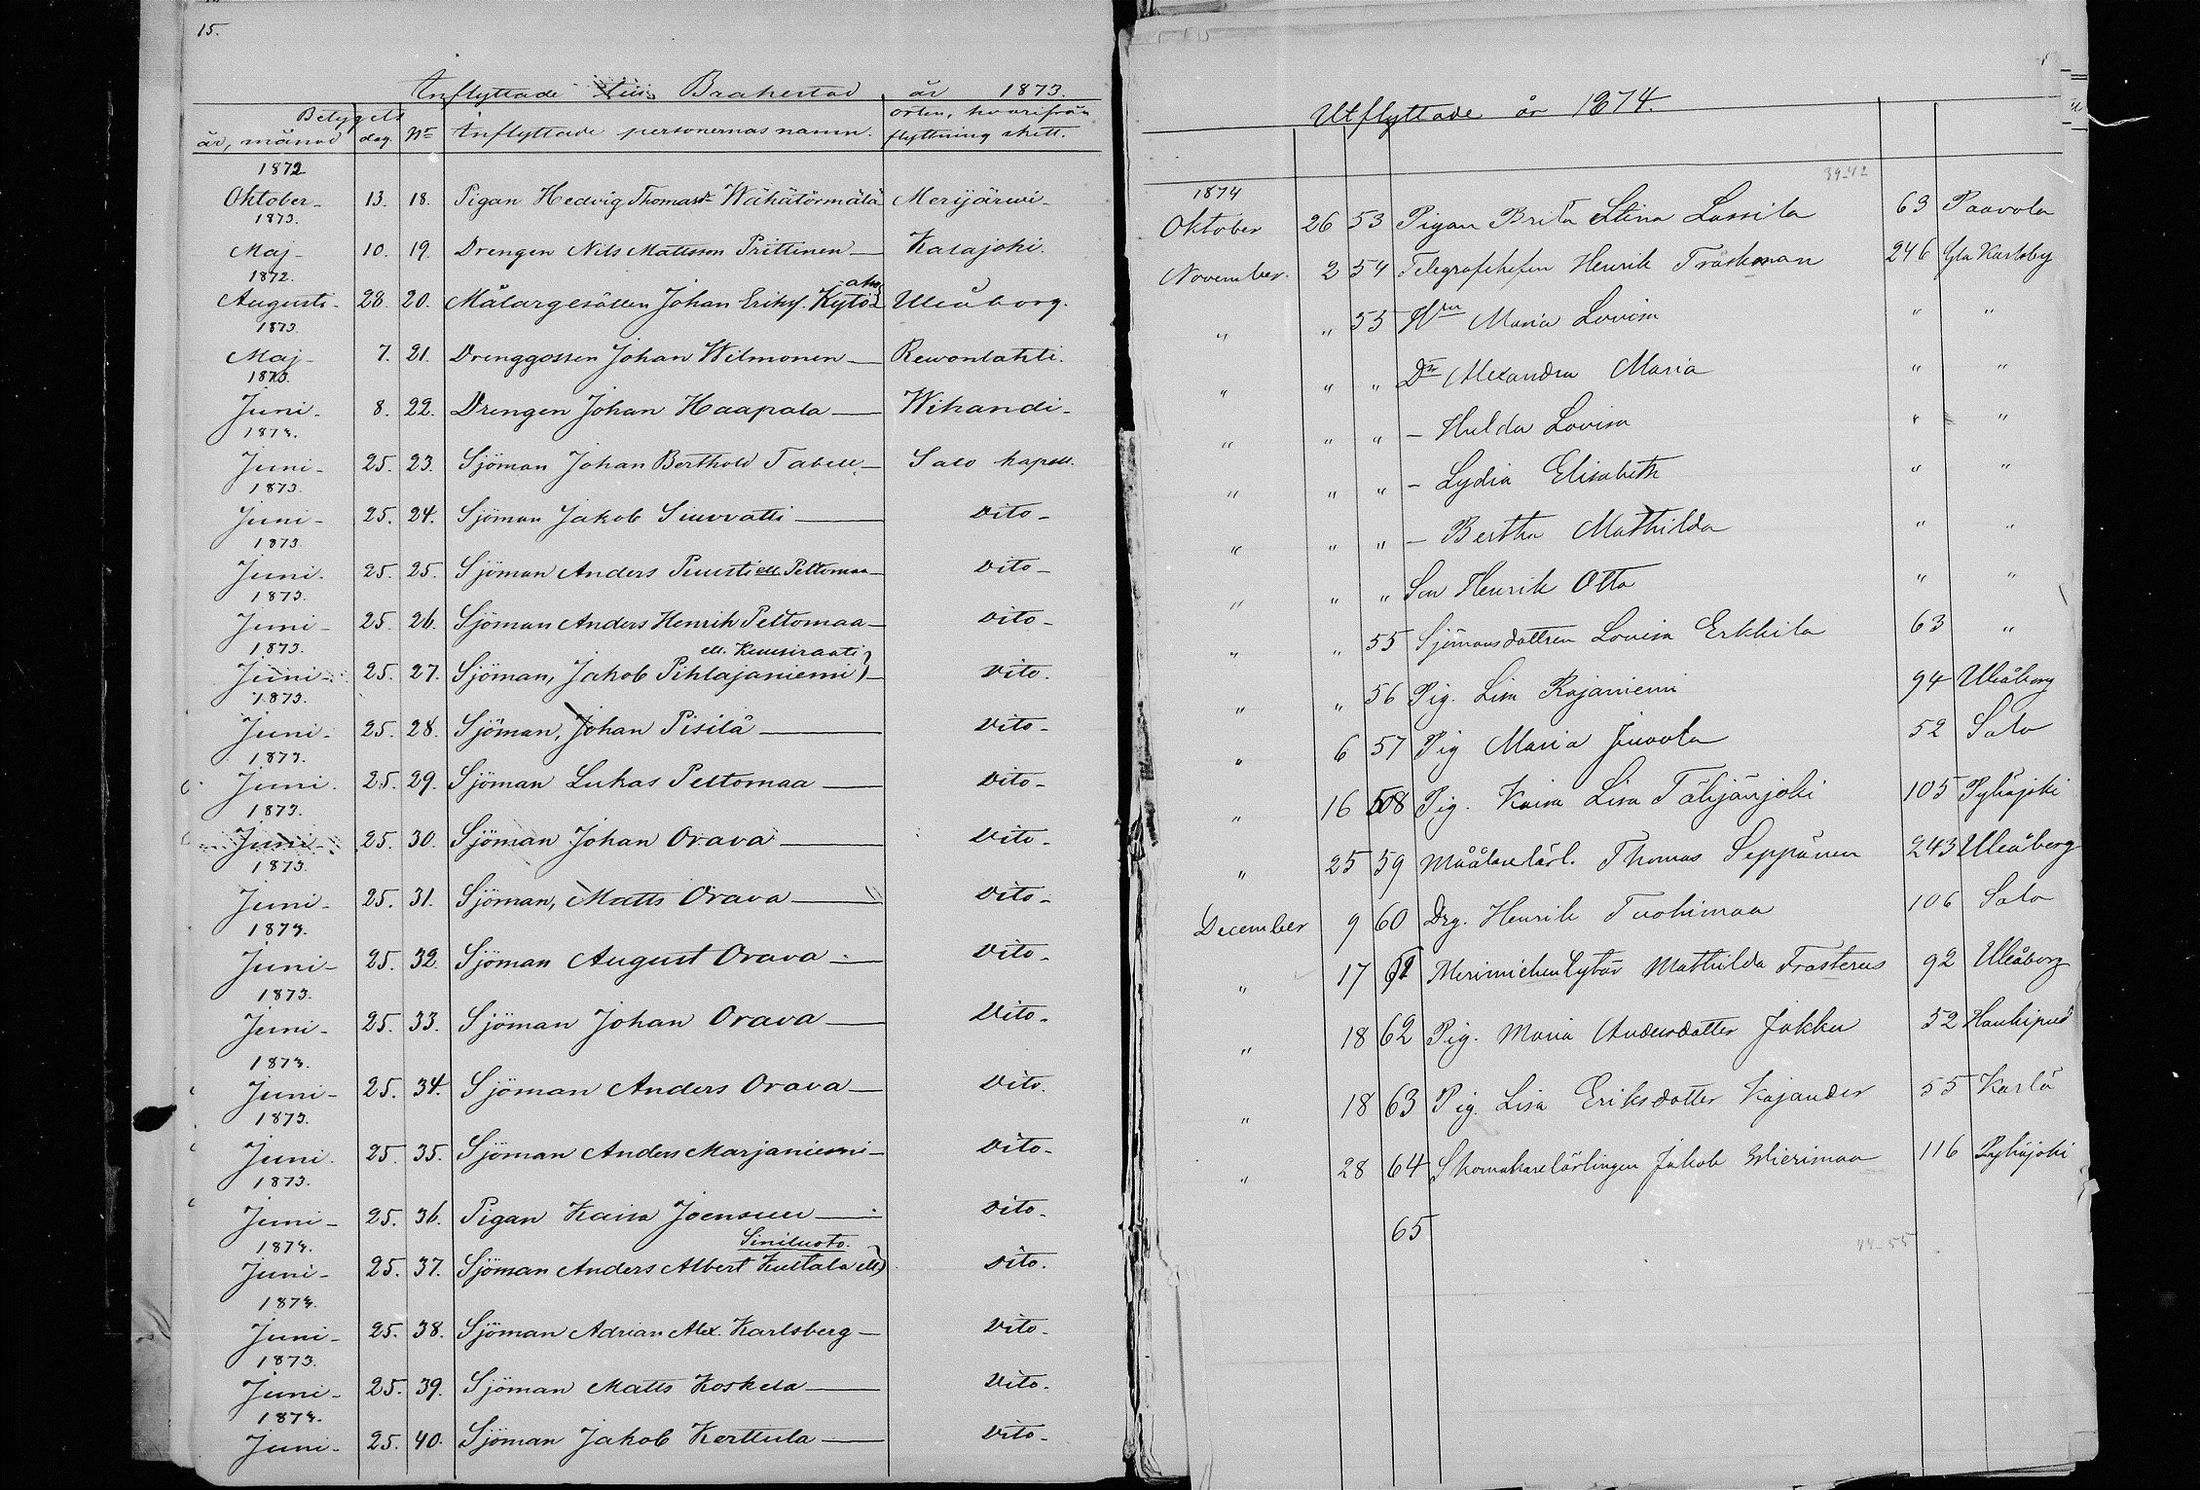 15.
Inflyttade till Brahestad år 1873.
Betygets orten, hvarifrån
år, månad dag. No Inflyttade personernas namn. flyttning skett.
1872
Oktober - 13. 18. Pigan Hedvig Thomasdr Wähätörmälä Merijärwi -
1873.
Maj - 10. 19. Drengen Nils Mattsson Prittinen — Kalajoki.
1872. aho
Augusti - 28. 20. Målargesällen Johan Eriksf. Kytö Uleåborg.
1873.
Maj - 7. 21. Drenggossen Johan Wilmonen — Rewonlahti.
1873.
Juni - 8. 22. Drengen Johan Haapala — Wihandi -
1873.
Juni - 25. 23. Sjöman Johan Berthold Tabell — Salo kapell.
1873.
Juni - 25. 24. Sjöman Jakob Siuvatti — dito -
1873.
Juni. 25. 25. Sjöman Anders Puusti ell. Peltomaa — dito -
1873.
Juni - 25. 26. Sjöman Anders Henrik Peltomaa — dito -
1873. ell. Kuusiraati
Juni - 25. 27. Sjöman, Jakob Pihlajaniemi) — dito.
1873.
Juni - 25. 28. Sjöman, Johan Pisilä — dito -
1873.
Juni. 25. 29. Sjöman Lukas Peltomaa — dito -
1873.
Juni - 25. 30. Sjöman Johan Orava — dito -
1873.
Juni - 25. 31. Sjöman, Matts Orava — dito -
1873.
Juni - 25. 32. Sjöman August Orava — dito -
1873.
Juni - 25. 33. Sjöman Johan Orava — dito -
1873.
Juni - 25. 34. Sjöman Anders Orava — dito.
1873.
Juni. 25. 35. Sjöman Anders Marjaniemi — dito -
1873.
Juni - 25. 36. Pigan Kaisa Joensuu — dito -
1873. Siniluoto.
Juni - 25. 37. Sjöman Anders Albert Kultala ell) dito.
1873.
Juni - 25. 38. Sjöman Adrian Alex. Karlsberg — dito -
1873.
Juni - 25. 39. Sjöman Matts Koskela — dito -
1873.
Juni - 25. 40. Sjöman Jakob Kerttula — dito -
Utflyttade år 1874.
39-42
1874
Oktober 26 53 Pigan Brita Stina Lassila 63 Paavola
November. 2 54 Telegrafchefen Henrik Träskman 246 Gla Karleby
" " 55 Hru Maria Lovisa " "
" " " Dr Alexandra Maria " "
" " " - Hulda Lovisa " "
" " " - Lydia Elisabeth " "
" " " - Bertha Mathilda " "
" " " Son Henrik Otto " "
" " 55 Sjömansdottren Lovisa Erkkila 63 "
" " 56 Pig. Lisa Rajaniemi 94 Uleåborg
" 6 57 Pig Maria Juvola 52 Salo
" 16 58 Pig. Kaisa Lisa Tähjänjoki 105 Pyhäjoki
" 25 59 Måålarelärl. Thomas Seppänen 243 Uleåborg
December 9 60 Drg. Henrik Tuohimaa 106 Salo
" 17 61 Mathilda Frosterus 92 Uleåborg
" 18 62 Pig. Maria Andersdotter Jakku 52 Haukipud
" 18 63 Pig. Lisa Eriksdotter Kajander 55 Karlö
" 28 64 Skomakarelärlingen Jakob Mierimaa 116 Pyhäjoki
65
44-55